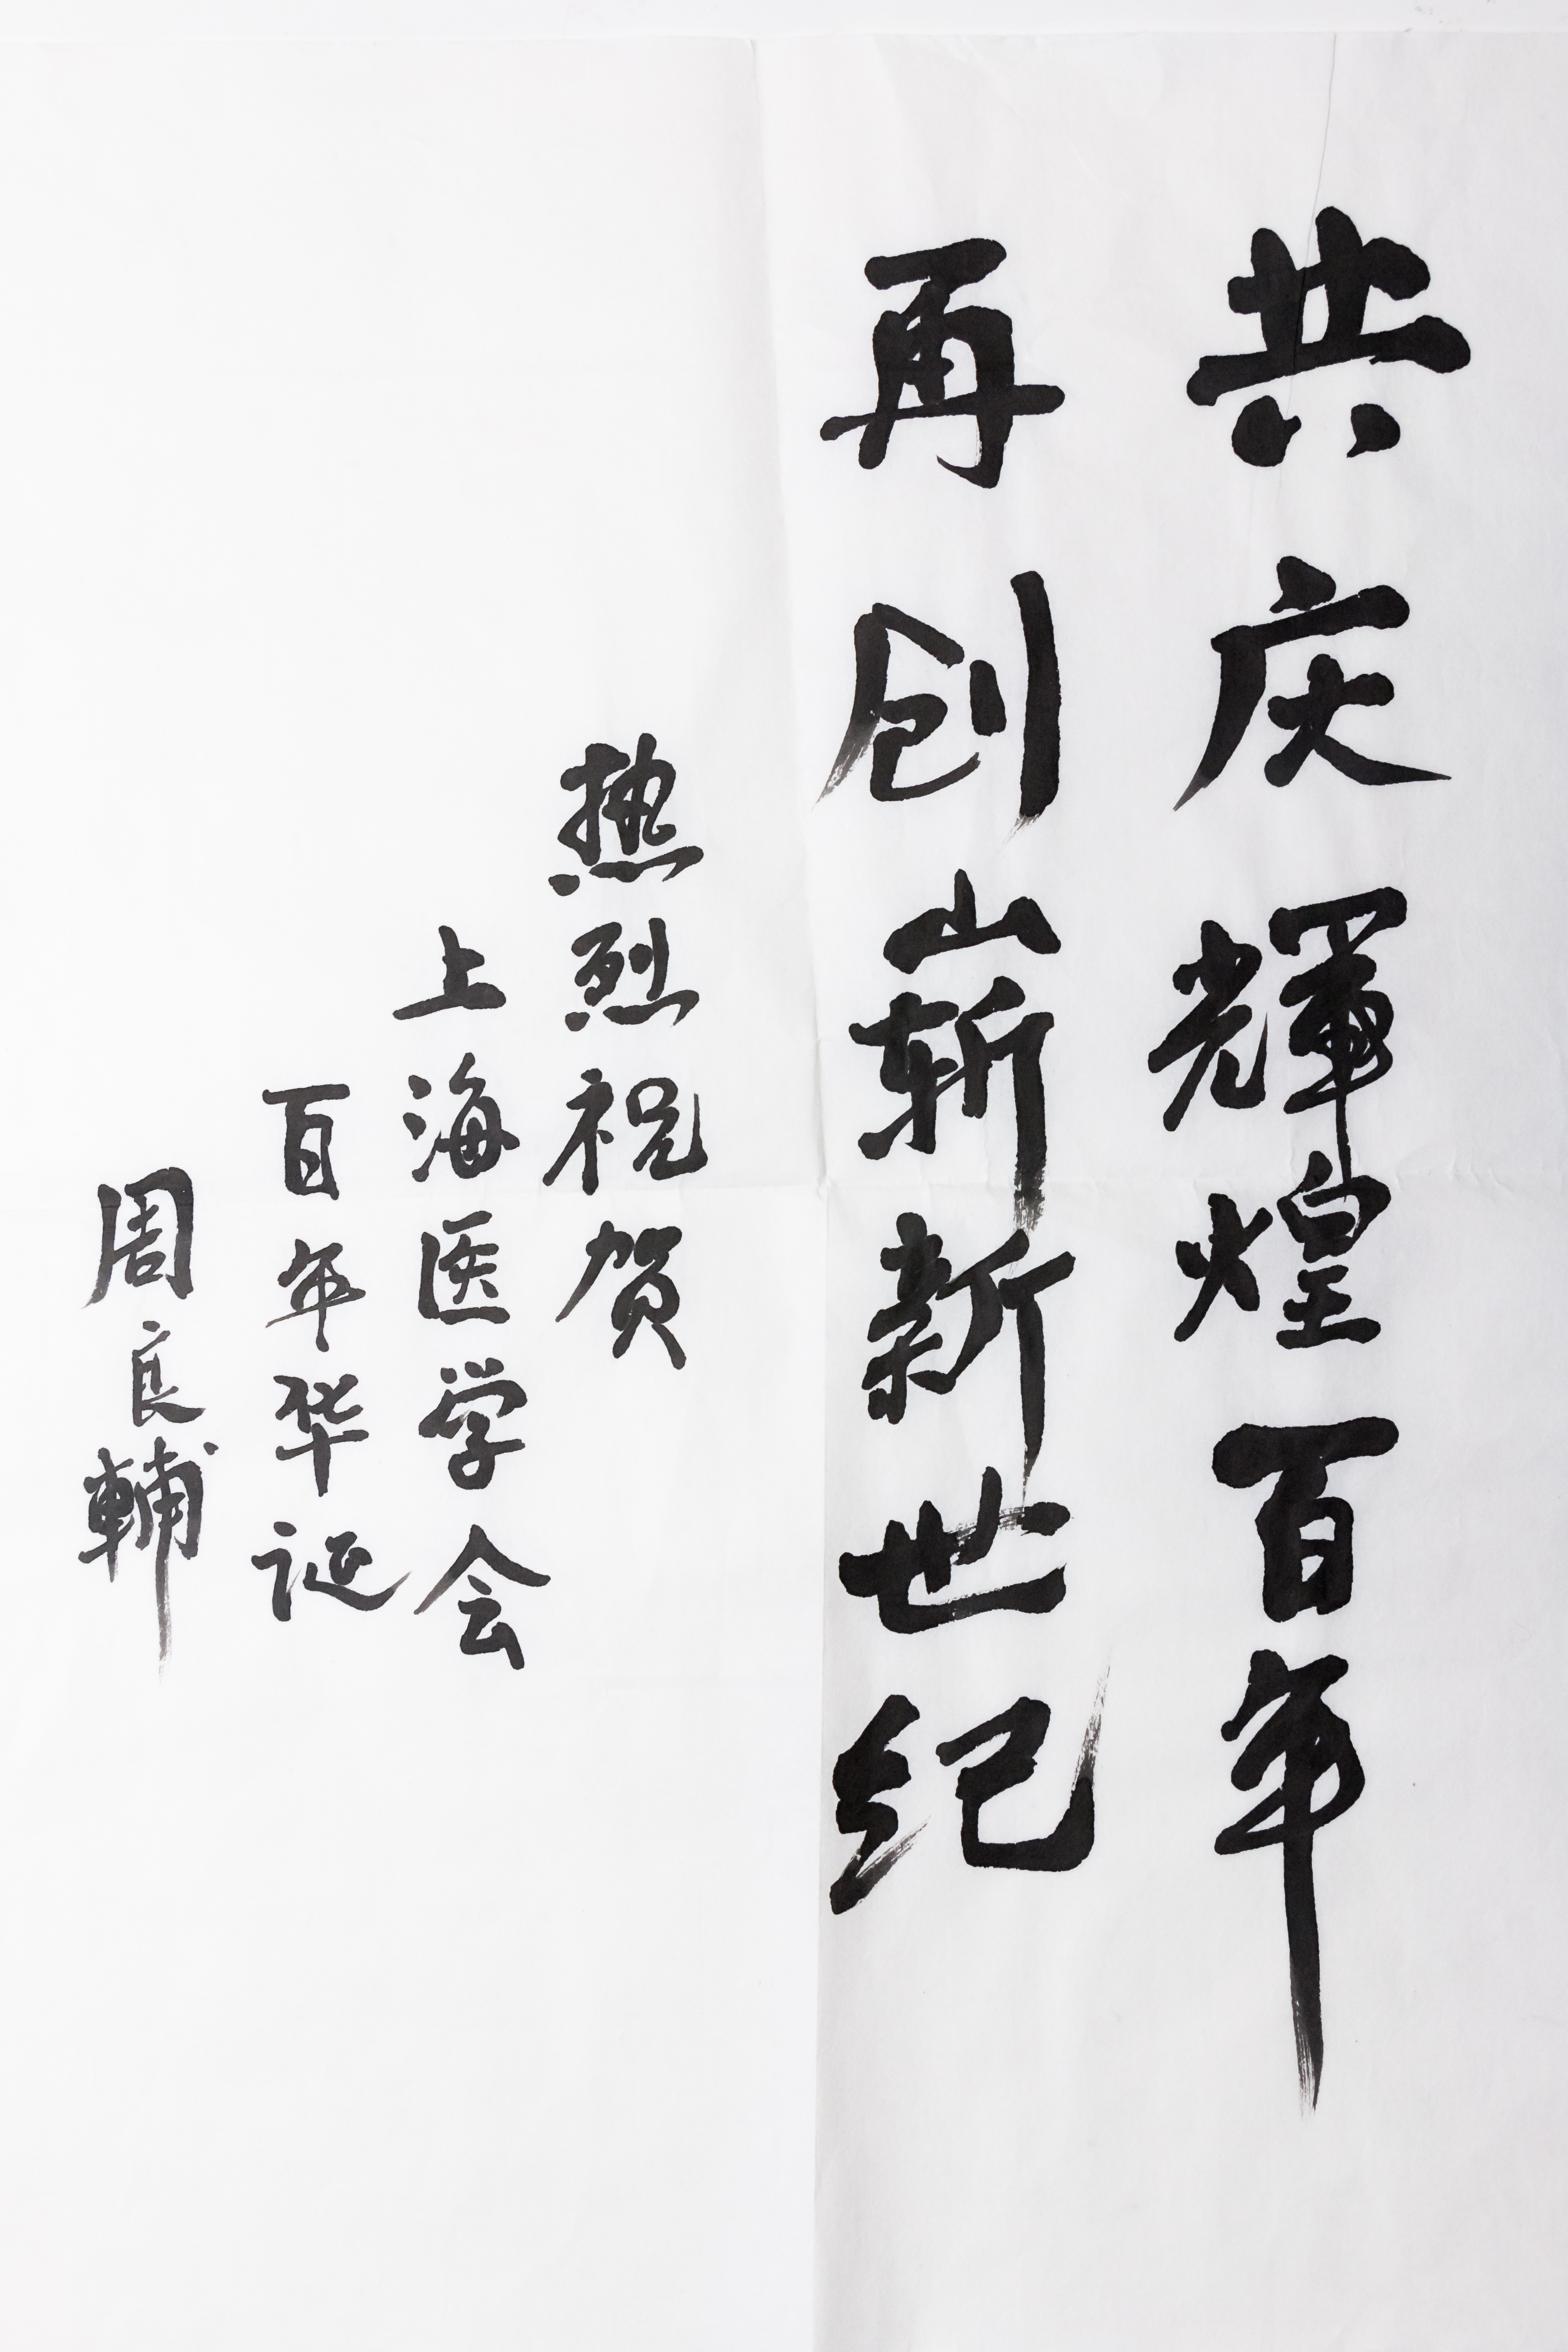 共庆輝煌百年
再创崭新世纪
热烈祝贺
上海医学会
百年华诞
周良輔